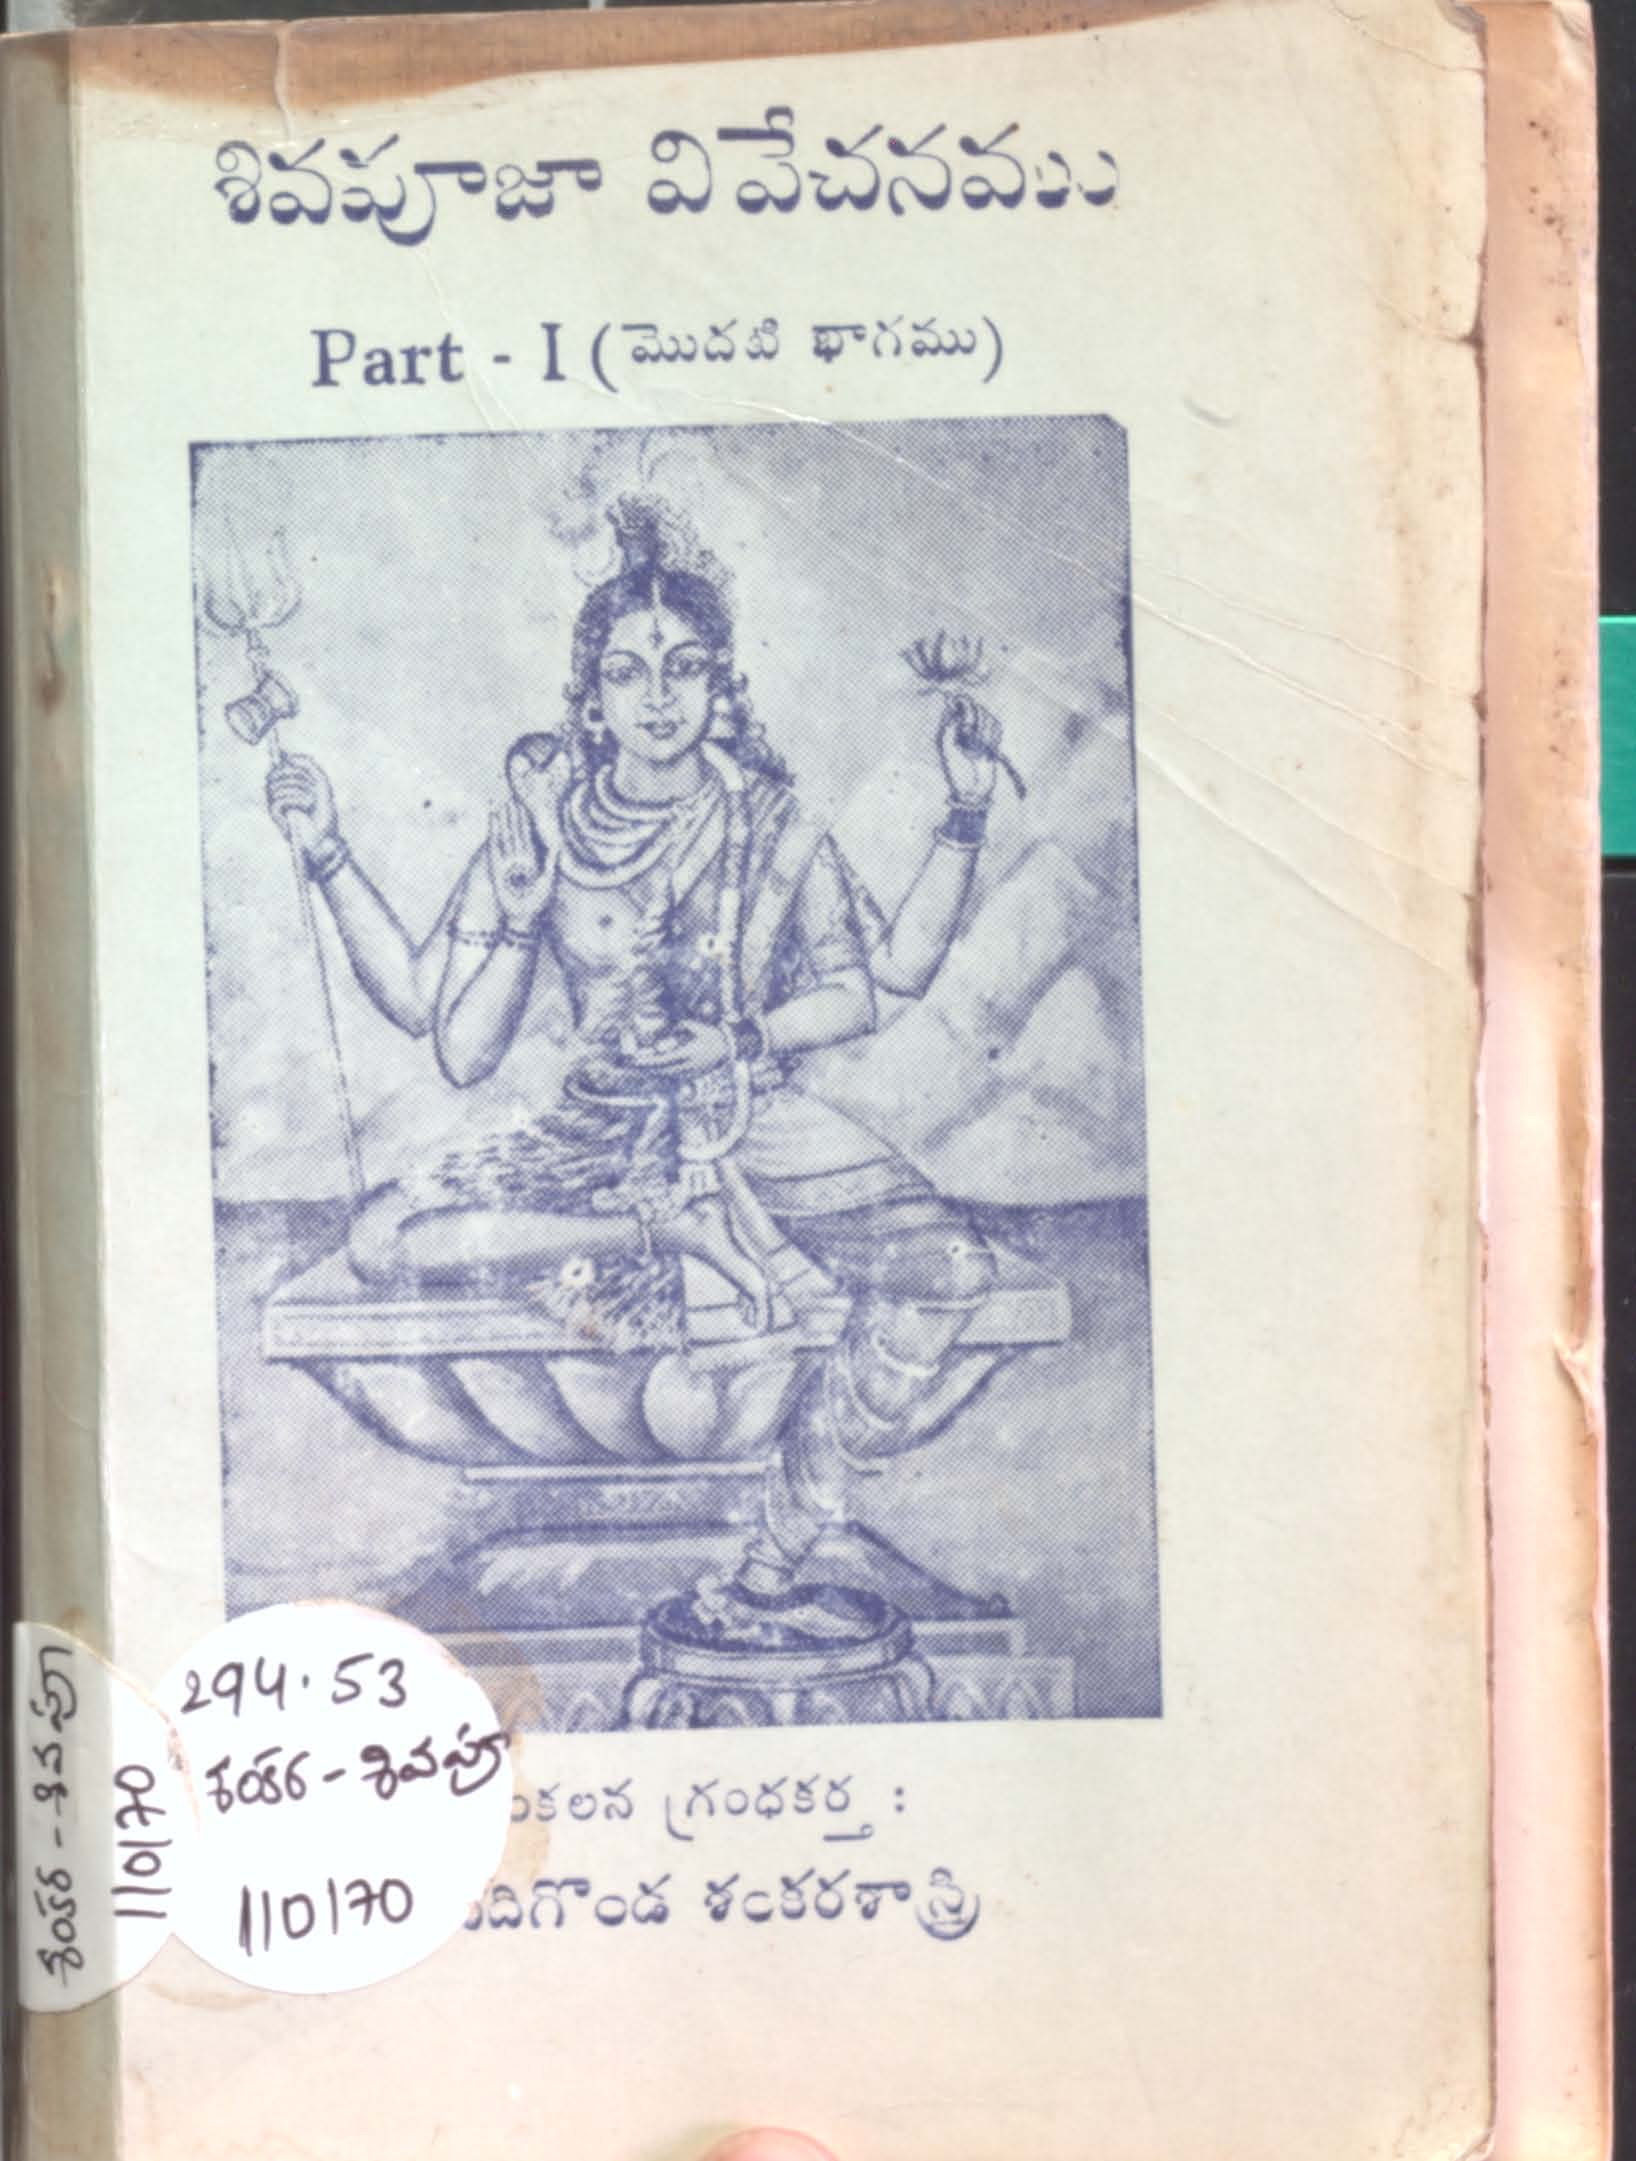 శివపూజా వివేచనము
Part - I (మొదటి భాగము)
294.53
శంకర - శివపూ
110170
గ్రంధకర్త :
శంకరశాస్త్రి
శంకర - శివపూ
110170